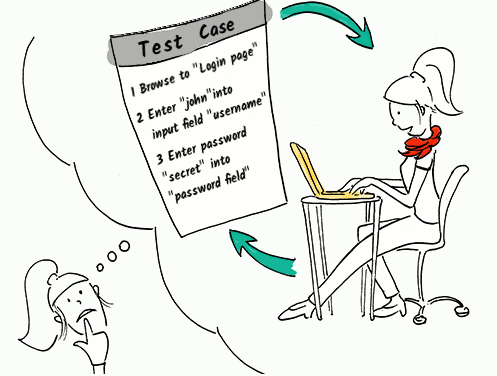 Test Case
1 Browse to "Login page"
2 Enter "john"into
input field "username"
3 Enter password
"secret" into
"password field"